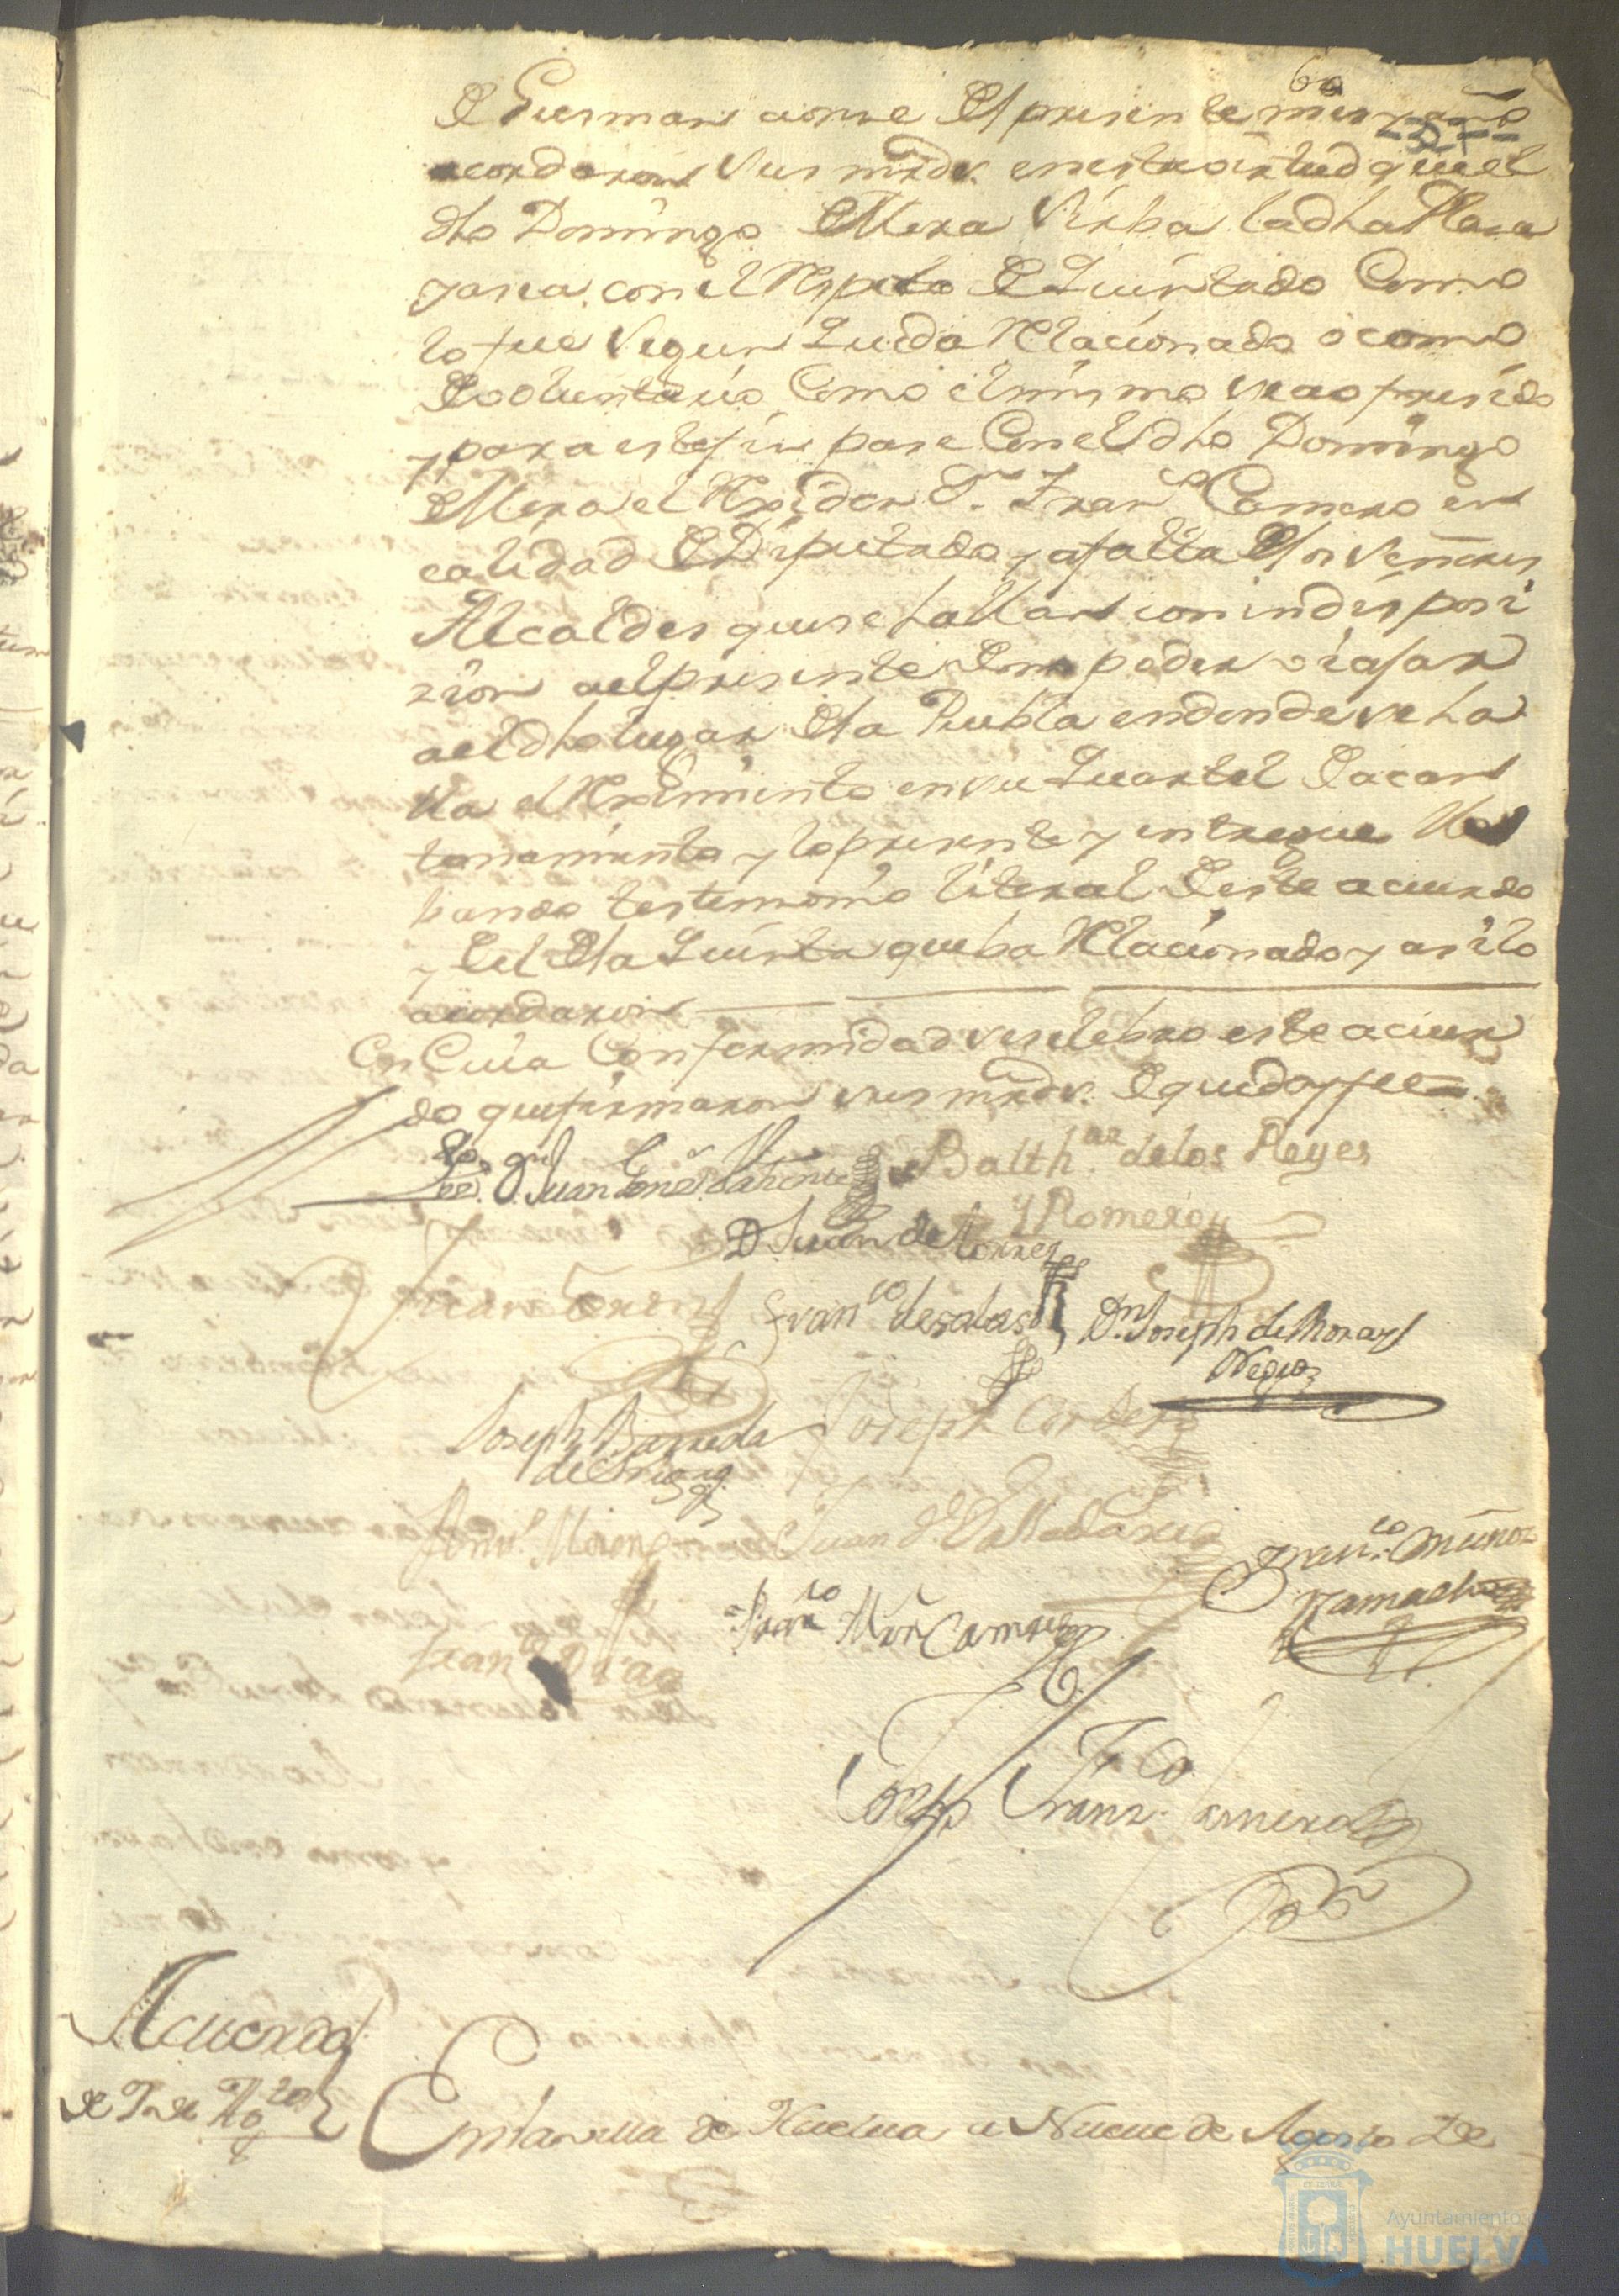 60
de Gusman acorre del presente mes y año
acordaron sus mrds. en esta virtud que el
dho Domingo Mera sirba la dha Plasa
ya sea con el Respeto de Quintado Como
lo fue segun queda Relacionado o como
Voluntario Como el mismo se a ofresido
y para este fin pase Con el dho Domingo
Mera el Rexidor Dn. Franco Camero en
calidad de Diputado y a falta de los señores
Alcaldes que se hallan con indisposi
zion a el presente de no poder viajar
a el dho lugar de la Puebla en donde se ha
lla el Reximiento en su Quartel de acan
tonamiento y lo presente y entregue lle
bando testimonio literal de este acuerdo
y del de la Quinta que ba Relacionado y asi lo
acordaron
En Cuia Conformidad se selebro este acuer
do que firmaron sus mrds. de que doy fee
Balthar. de los Reyes
y Romero
D. Juan de torres
Franco de salas
Dn. Joseph de Mora y
Negro
Joseph Barreda
Joseph Cordero
Moreno
Juan de Valladares
Franco. Muñoz
Camacho
Franco Mrn Camero
Franco Diaz
Josep Franco. Camero
Acuerdo
de 9 de Agto
En la villa de Huelva a Nueve de Agosto de
Ayuntamiento de
HUELVA